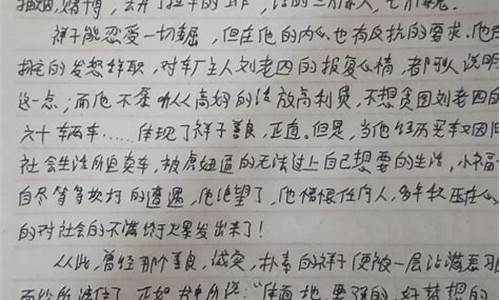 抽烟,赌博,丢开了拉车的工作,活的三分像人,七分像鬼.
祥子能忍受一切屈,但在他的内心也有反抗的要求.他在
的发怒辞职,对车厂主人刘老四的报复心情,都可以说明
这一点;而他不爱听从高妈的话放高利贷,不想贪图刘老四的
六十辆车……体现了祥子善良,正直.但是,当他经历买车又因旧
社会生活所迫卖车,被虎妞逼的无法过上自己想要的生活,小福子
自尽等等坎坷的遭遇,他绝望了,他憎恨任何人,多年积压在心
的对社会的不满终于爆发出来了!
从此,曾经那个善良,诚实,朴素的祥子便被一层沾满